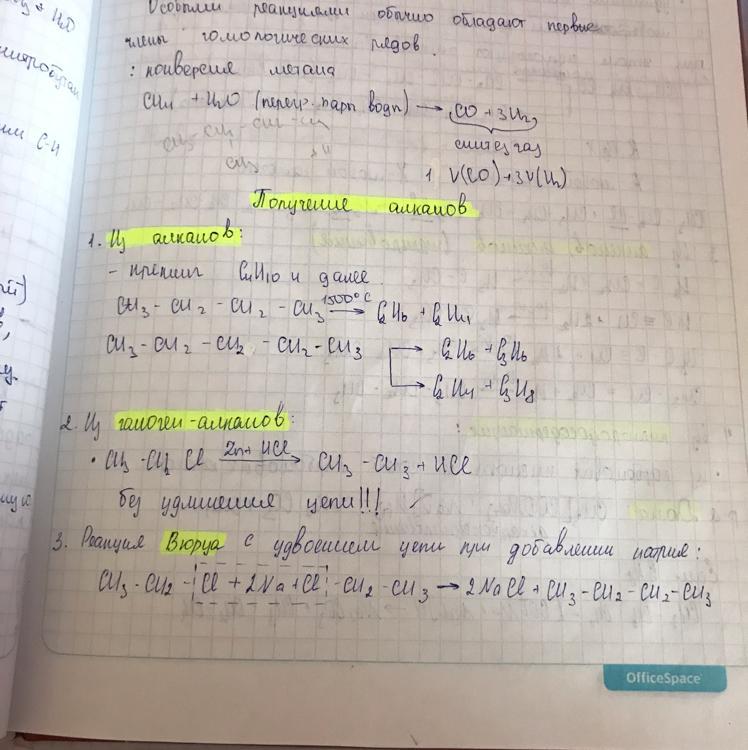 Особыми реакциями обычно обладают первые
члены гомологических рядов.
: конверсия метана
CH4 + H2O (перегр. пары воды) → CO + 3H2
синтез газ
1 V(CO)+3V(H2)
Получение алканов
1. Из алканов:
- крекинг C4H10 и далее.
CH3 - CH2 - CH2 - CH3 1500°C → C2H6 + C2H4
CH3 - CH2 - CH2 - CH2 - CH3 → C2H6 + C3H6
→ C2H4 + C3H8
2. Из галоген-алканов:
• CH3 - CH2 Cl Zn + HCl → CH3 - CH3 + HCl
без удлинения цепи!!!
3. Реакция Вюрца с удвоением цепи при добавлении натрия:
CH3 - CH2 - Cl + 2Na + Cl - CH2 - CH3 → 2NaCl + CH3 - CH2 - CH2 - CH3
OfficeSpace
H2O
нитробутан
C-H